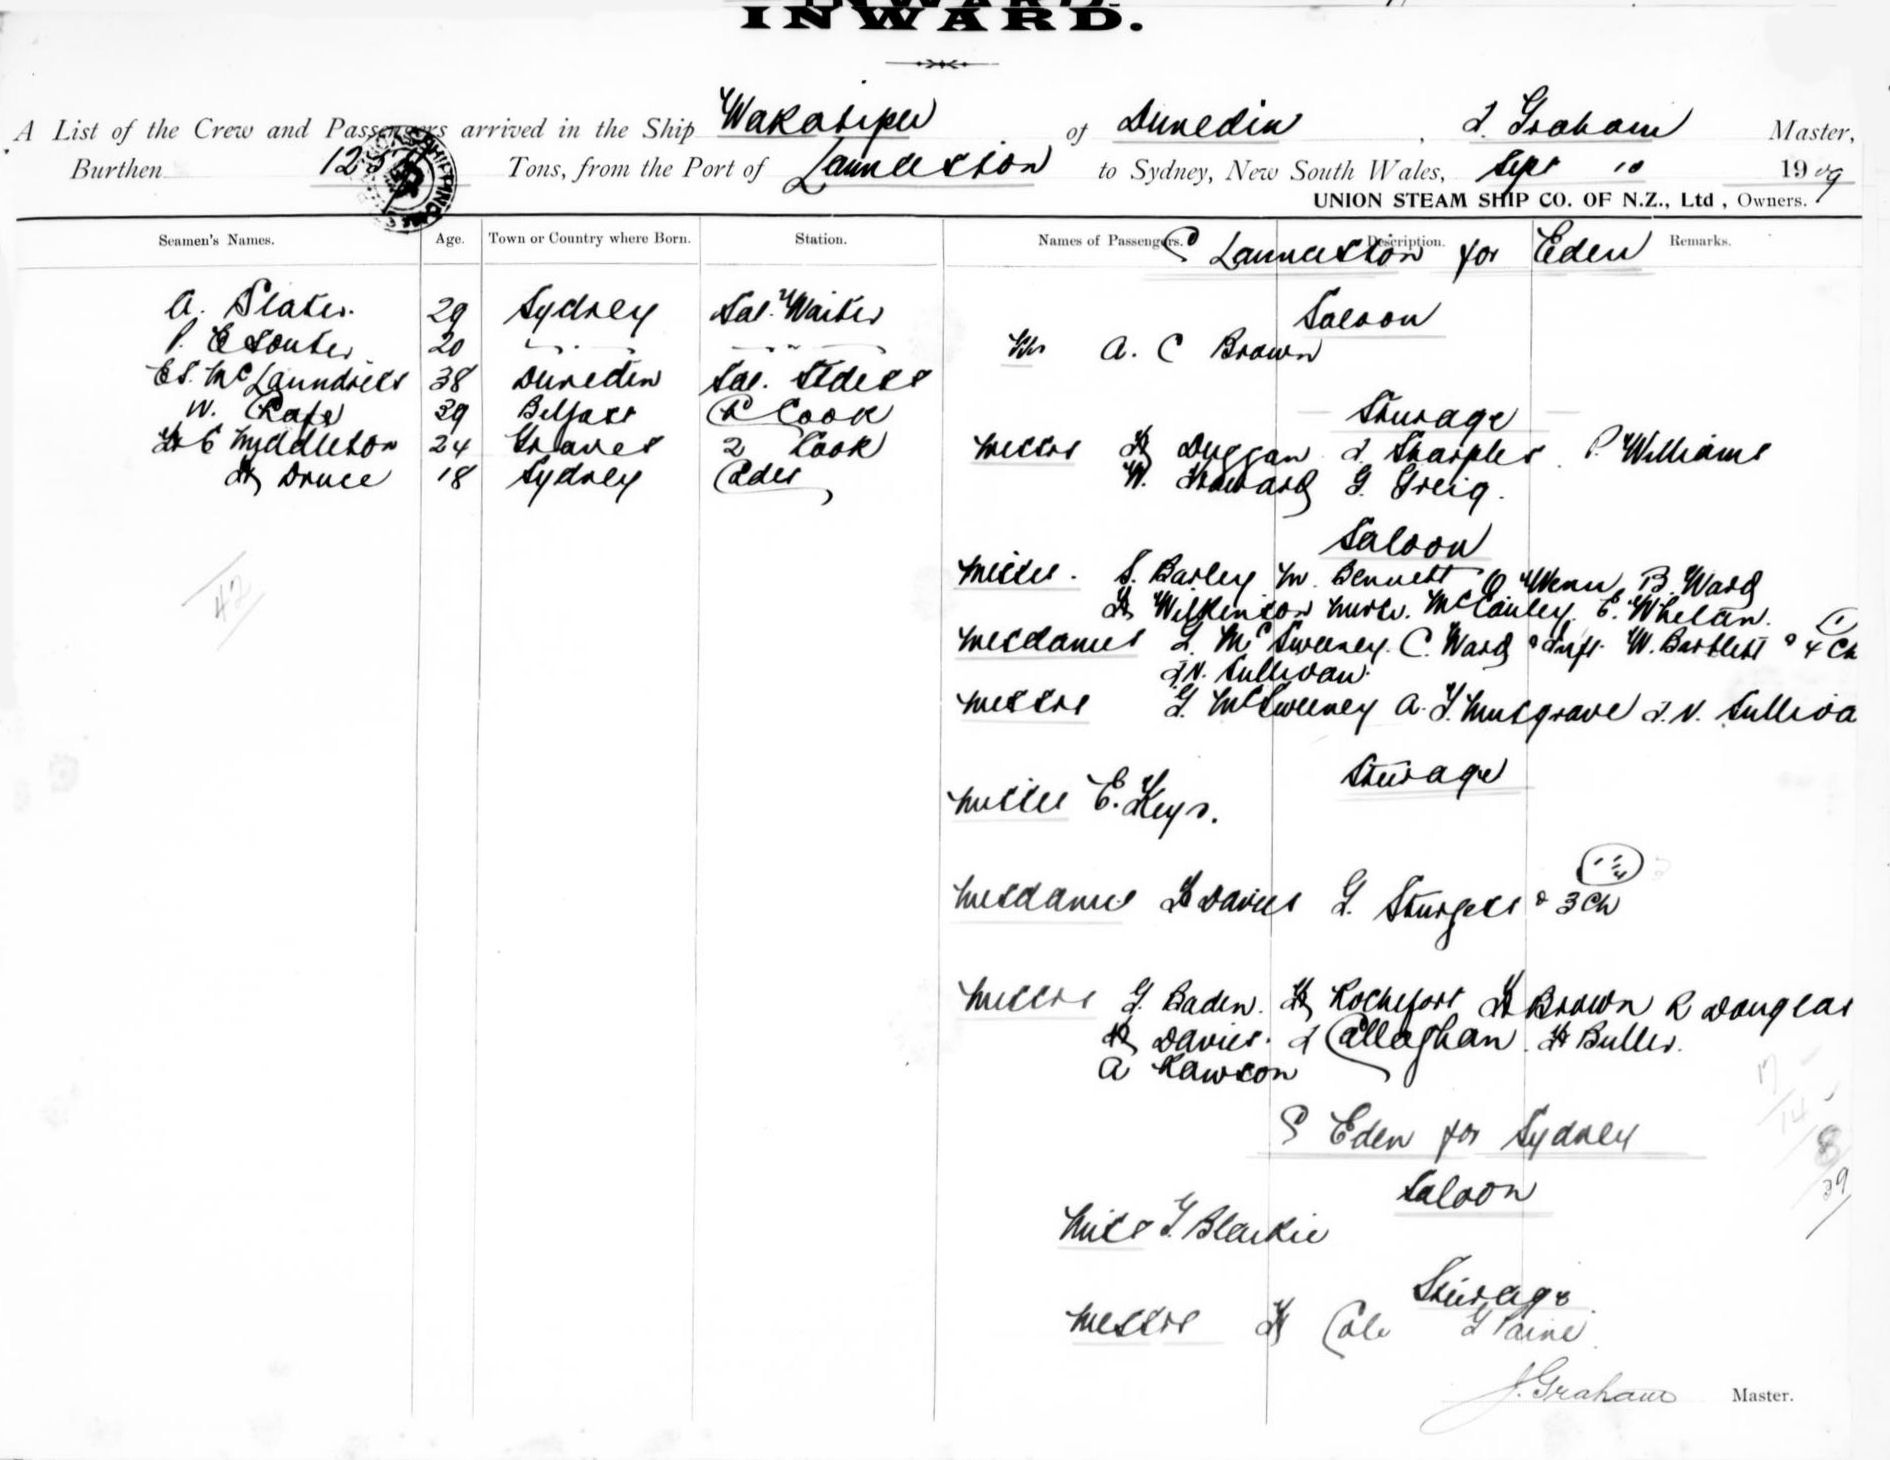 INWARD.
A List of the Crew and Passengers arrived in the Ship Wakatipu of Dunedin, J. Graham Master,
Burthen Tons, from the Port of Launceston to Sydney, New South Wales, Sept 10 1909
UNION STEAM SHIP CO. OF N.Z., Ltd, Owners.
Seamen's Names. Age. Town or Country where Born. Station. Names of Passengers. Description. Remarks.
Launceston for Eden
A. Slater. 29 Sydney Sal. Waiter
Saloon
P. E Souter 20 " "
Mr A. C Brown
E S. McLaundress 38 Dunedin Sal. Stdess
Steerage
W. Rafe 39 Belfast Cook
H C Myddleton 24 Graves 2 Cook
Messrs H Duggan J Sharples. P. Williams
H Druce 18 Sydney
W. Howard G. Greig.
Saloon
Misses. S. Bailey M. Bennett O Wenn B. Ward
H Wilkinson Nurse. McCauley. E. Whelan.
42
Mesdames L. McSweeney. C. Ward & Inft. W. Bartlett & 4 Ch
J N. Sullivan.
Messrs G. McSweeney A. J. Musgrave J. N. Sulliva
Steerage
Misses E. Keys.
Mesdames H Davies G. Sturgess & 3 Ch
Messrs G. Baden. H Rochefort H Brown R Douglas
H Davies. J Callaghan. H Buller.
A Rawson
Eden for Sydney
17
14
8
39
Saloon
Miss G. Blackie
Steerage
Messrs H Cole G Paine.
J. Graham Master.